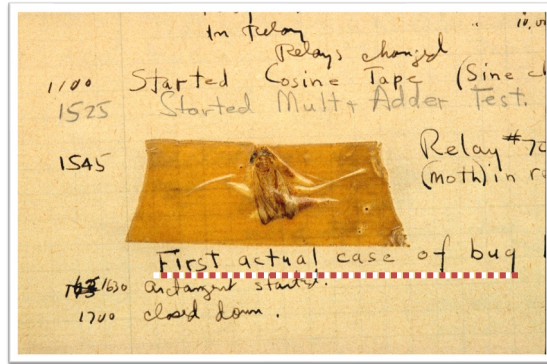 in relay
10,00
Relays changed
1100 Started Cosine Tape (Sine c
1525 Started Mult + Adder Test.
1545 Relay #70
(moth) in r
First actual case of bug b
1630 arctangent started.
1700 closed down.